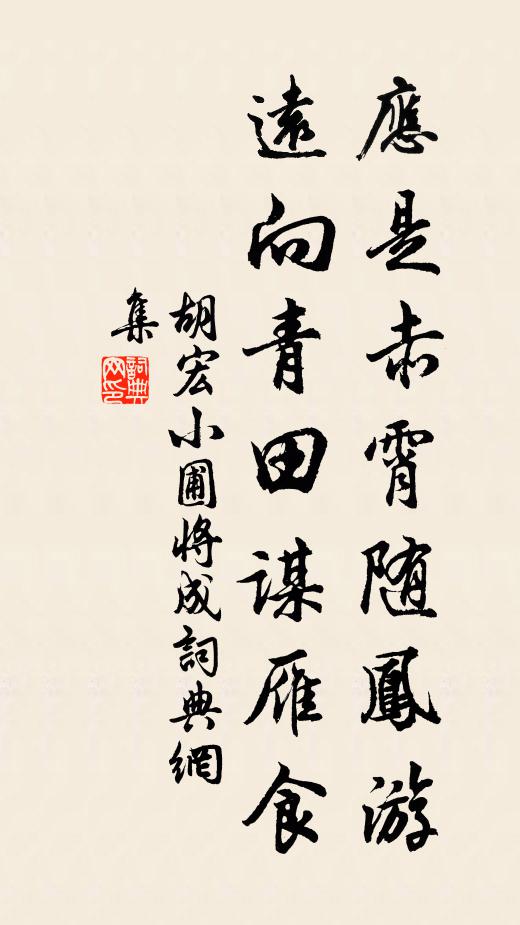 應是赤霄随鳳游
遠向青田謀雁食
胡宏小圃將成詞典網
集
詞典
网印